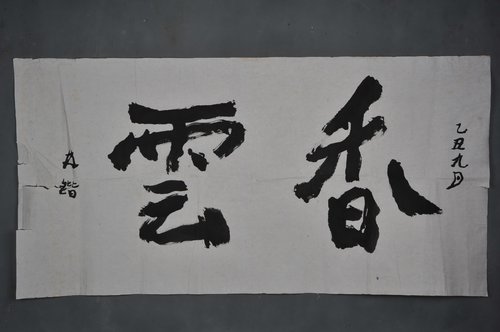 乙丑九月
香雲